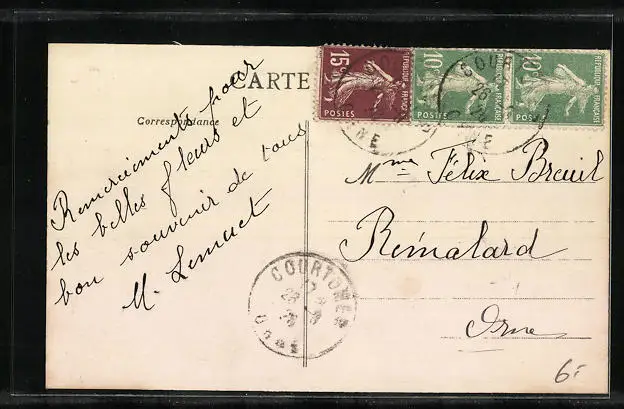 CARTE
Correspondance
Remerciements pour
les belles fleurs et
bon souvenir de tous
M. Lemuet
15c
REPUBLIQUE FRANÇAISE
POSTES
10c
REPUBLIQUE FRANÇAISE
POSTES
10c
REPUBLIQUE FRANÇAISE
POSTES
Mme Félix Breuil
Rémalard
Orne
COURTOMER
ORNE
6-